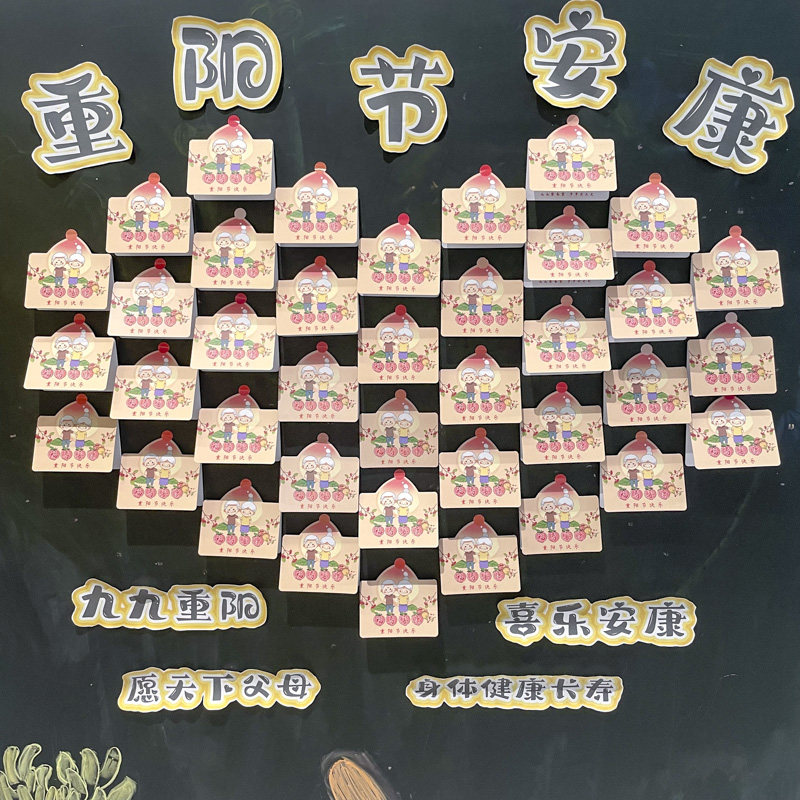 重阳节安康
重阳节快乐
九九重阳
喜乐安康
愿天下父母
身体健康长寿